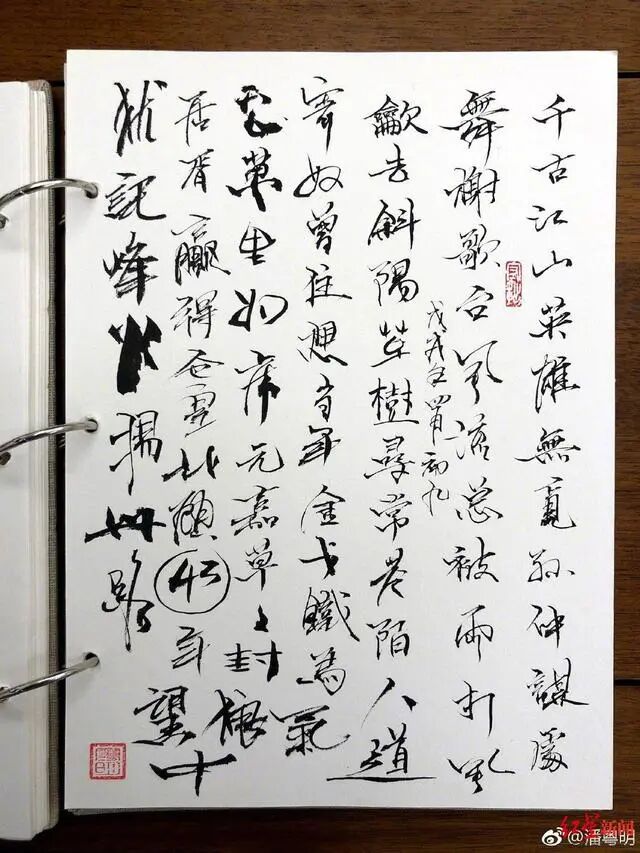 千古江山英雄無覓孫仲謀處
舞榭歌台風流总被雨打風
戊戌年四月初九
龡去斜陽草樹尋常巷陌人道
寄奴曾住想當年金戈鐵馬氣
吞萬里如虎元嘉草々封狼
居胥贏得倉皇北顧43年望中
猶記烽火揚州路
红星新闻
@潘粤明